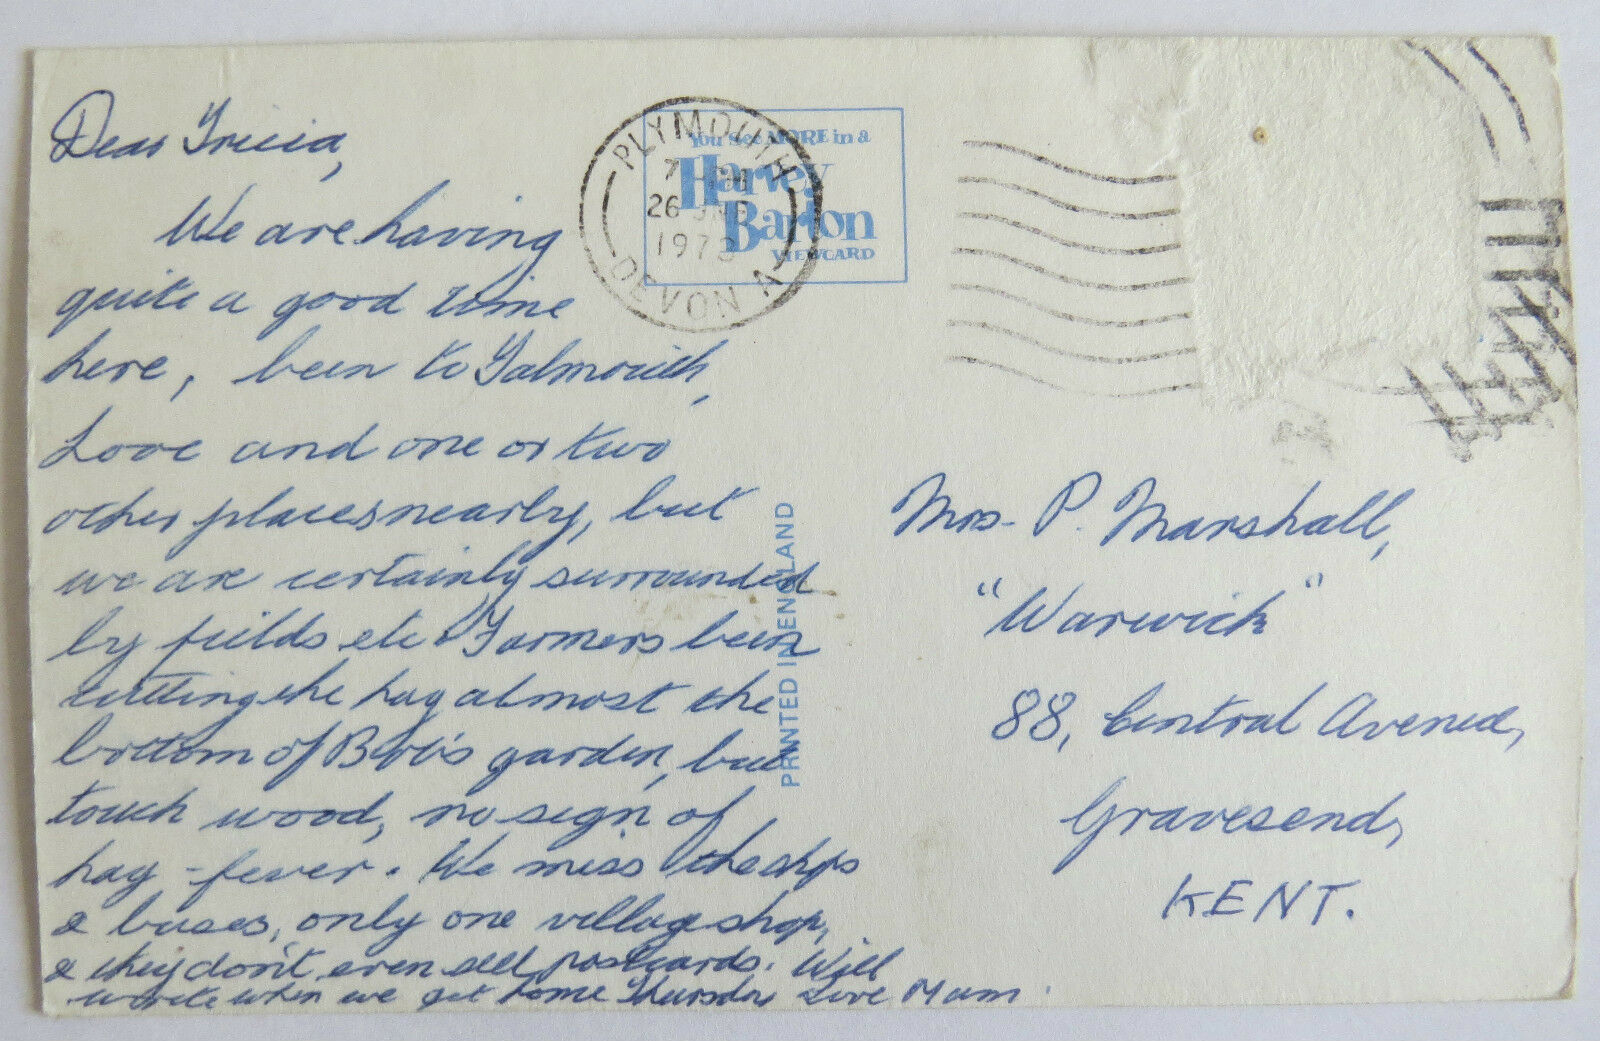 Dear Tricia,
We are having
quite a good time
here, been to Falmouth,
Looe and one or two
other places nearly, but
we are certainly surrounded
by fields etc. Farmers been
cutting the hay almost the
bottom of Bob's garden, but
touch wood, no sign of
hay-fever. We miss the shps
& buses, only one village shop,
& they don't even sell postcards. Will
write when we get home Thursday Love Mam.
PLYMOUTH
7
26 JNE
1973
DEVON A
You See MORE in a
Harvey
Barton
VIEWCARD
PRINTED IN ENGLAND
Mrs. P. Marshall,
"Warwick"
88, Central Avenue,
Gravesend,
KENT.